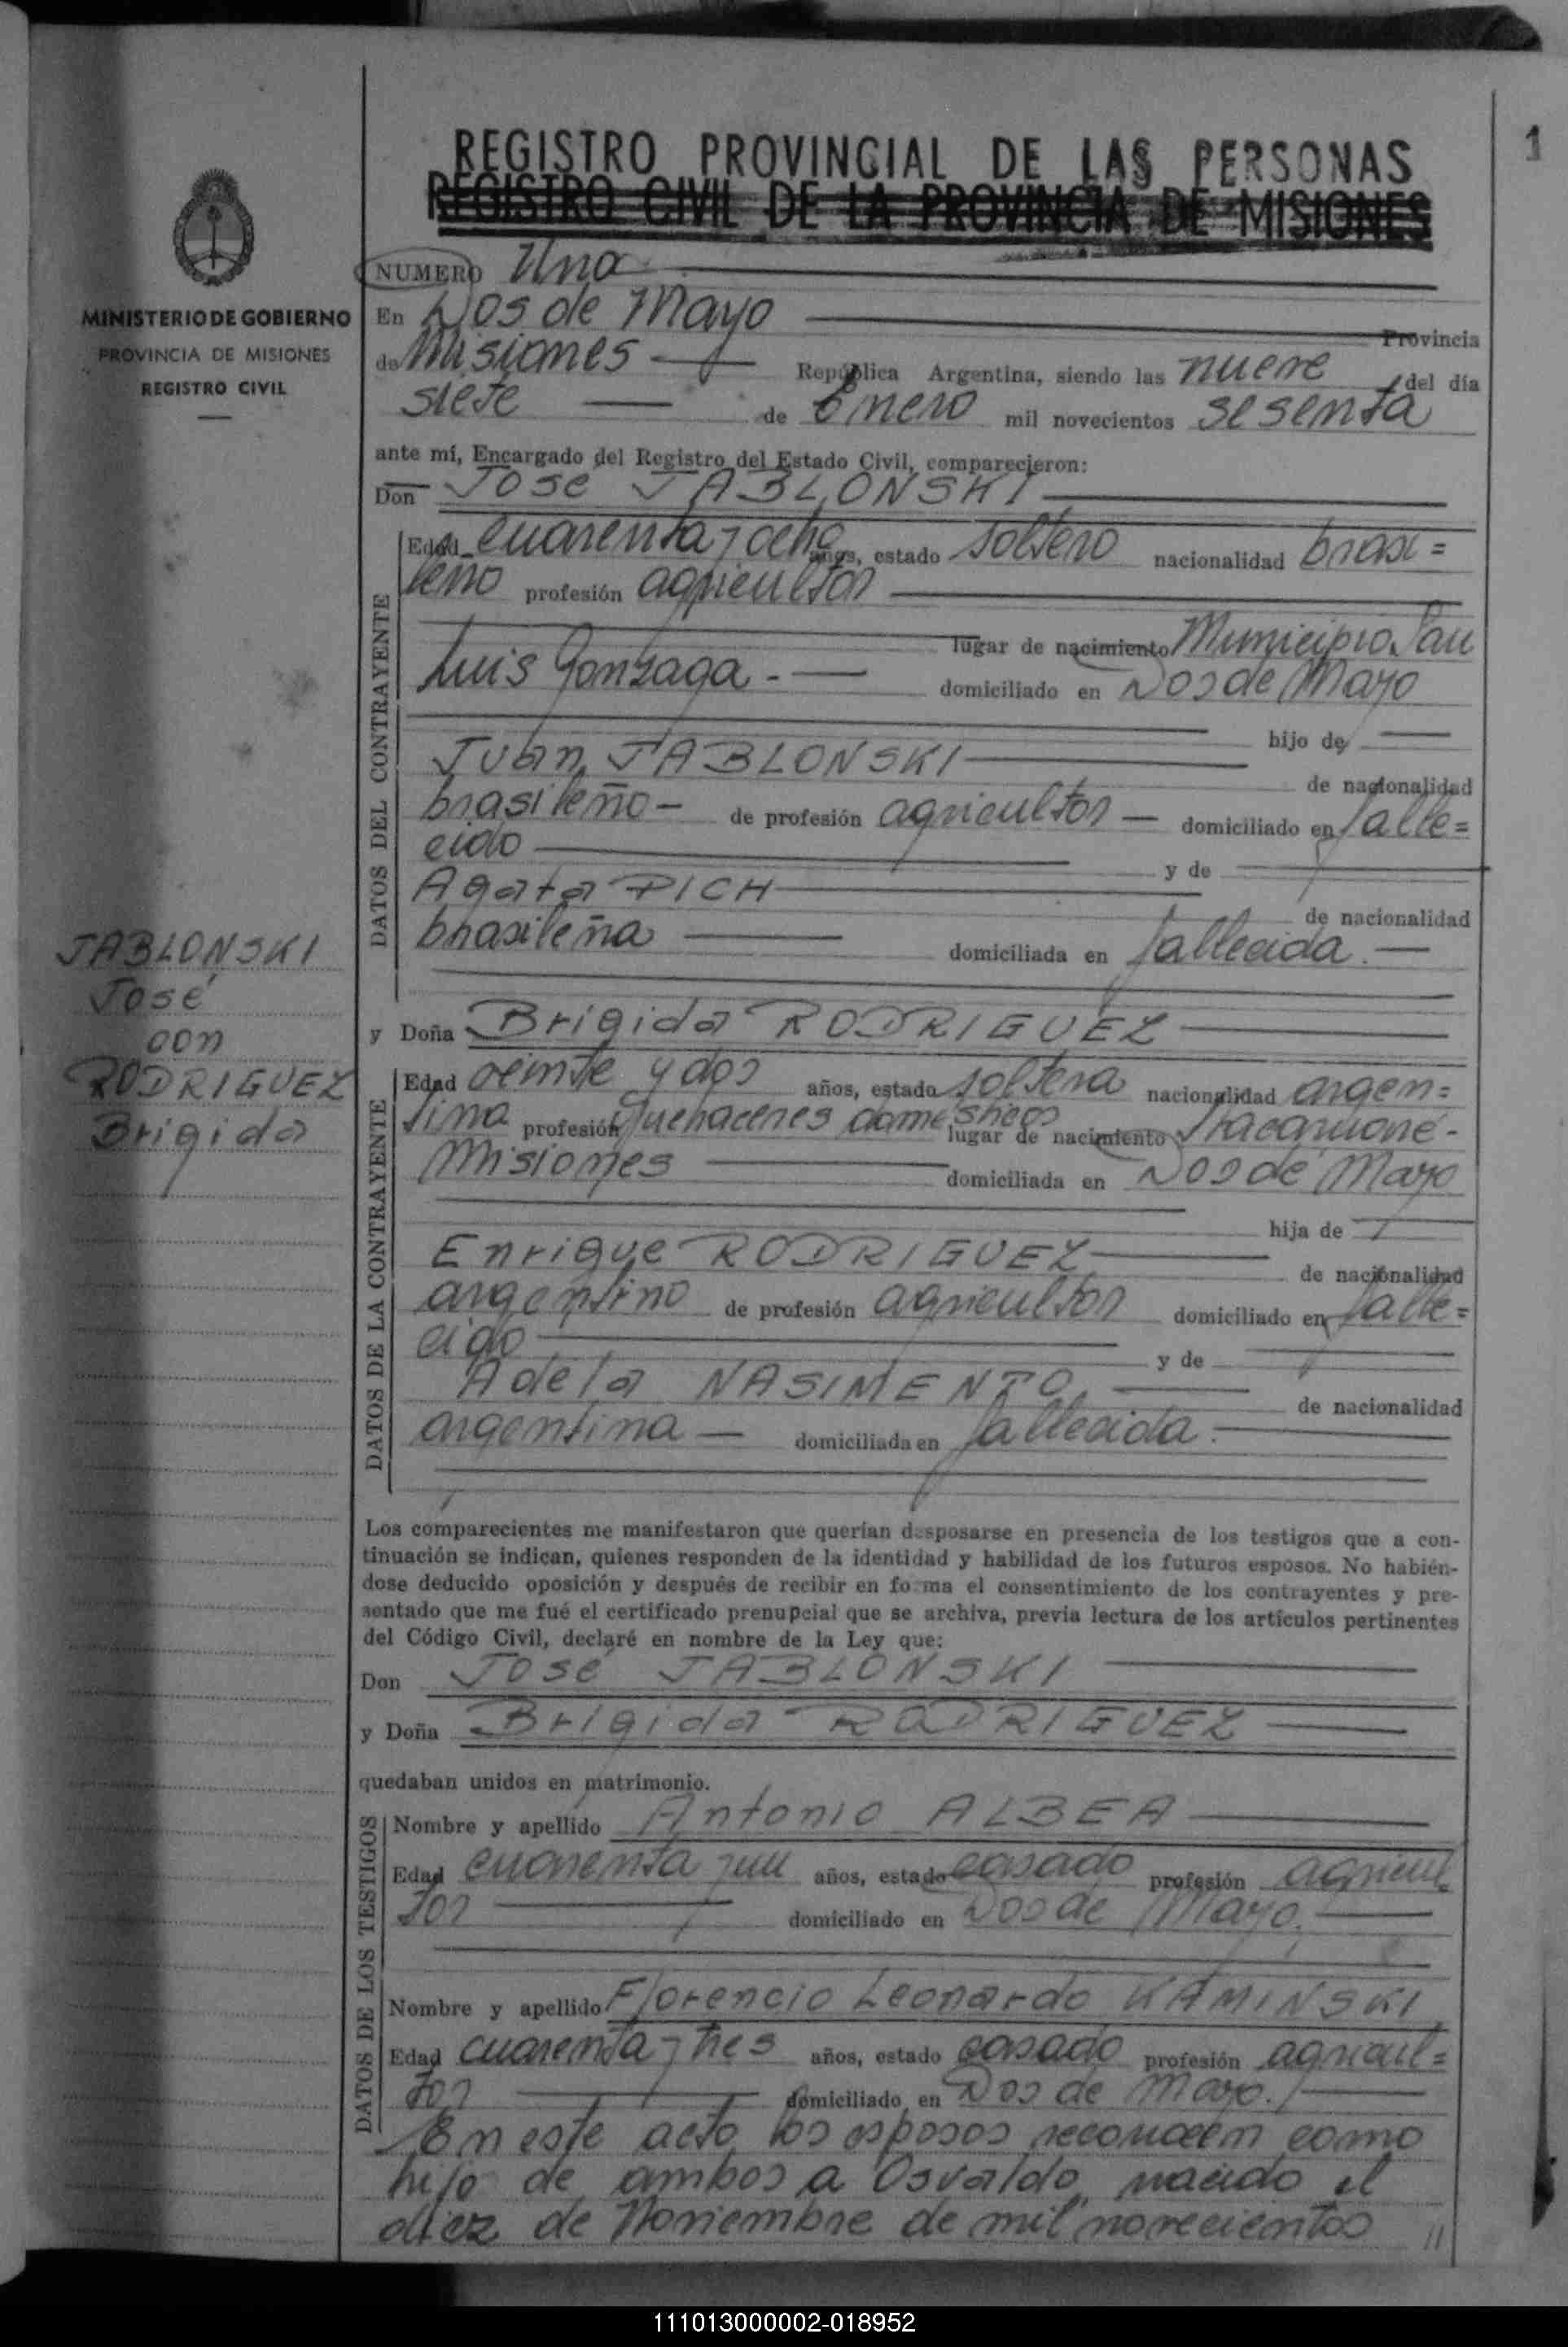 REGISTRO PROVINCIAL DE LAS PERSONAS
REGISTRO CIVIL DE LA PROVINCIA DE MISIONES
1
MINISTERIO DE GOBIERNO
PROVINCIA DE MISIONES
REGISTRO CIVIL
JABLONSKI
José
con
RODRIGUEZ
Brigida
NUMERO Uno
En Dos de Mayo Provincia
de Misiones República Argentina, siendo las nueve del día
siete de Enero mil novecientos sesenta
ante mí, Encargado del Registro del Estado Civil, comparecieron:
Don José JABLONSKI
DATOS DEL CONTRAYENTE
Edad cuarenta y ocho años, estado soltero nacionalidad brasi=
leño profesión agricultor
lugar de nacimiento Municipio San
Luis Gonzaga.- domiciliado en Dos de Mayo
hijo de
Juan JABLONSKI
de nacionalidad
brasileño- de profesión agricultor- domiciliado en falle=
cido
y de
Agata PICH
de nacionalidad
brasileña domiciliada en fallecida.-
y Doña Brigida RODRIGUEZ
DATOS DE LA CONTRAYENTE
Edad veinte y dos años, estado soltera nacionalidad argen=
tina profesión quehaceres domesticos lugar de nacimiento
Misiones domiciliada en Dos de Mayo
hija de
Enrique RODRIGUEZ
de nacionalidad
argentino de profesión agricultor domiciliado en falle=
cido
y de
Adela NASIMENTO
de nacionalidad
argentina- domiciliada en fallecida.
Los comparecientes me manifestaron que querían desposarse en presencia de los testigos que a con-
tinuación se indican, quienes responden de la identidad y habilidad de los futuros esposos. No habién-
dose deducido oposición y después de recibir en forma el consentimiento de los contrayentes y pre-
sentado que me fué el certificado prenupcial que se archiva, previa lectura de los artículos pertinentes
del Código Civil, declaré en nombre de la Ley que:
Don José JABLONSKI
y Doña Brigida RODRIGUEZ
quedaban unidos en matrimonio.
DATOS DE LOS TESTIGOS
Nombre y apellido Antonio ALBEA
Edad cuarenta y un años, estado casado profesión agricul
tor domiciliado en Dos de Mayo.
Nombre y apellido Florencio Leonardo KAMINSKI
Edad cuarenta y tres años, estado casado profesión agricul=
tor domiciliado en Dos de Mayo.
En este acto los esposos reconocen como
hijo de ambos a Osvaldo, nacido el
diez de Noviembre de mil novecientos //
111013000002-018952